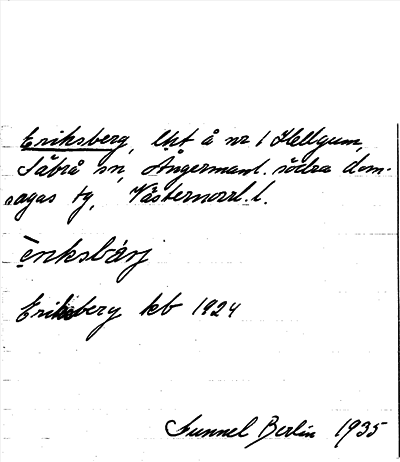 Eriksberg, lht å nr 1 Hellgum,
Säbrå sn, Ångermanl. södra dom-
sagas tg, Västernorrl. l.
ẹnksbárj
Eriksberg kb 1924
Gunnel Berlin 1935